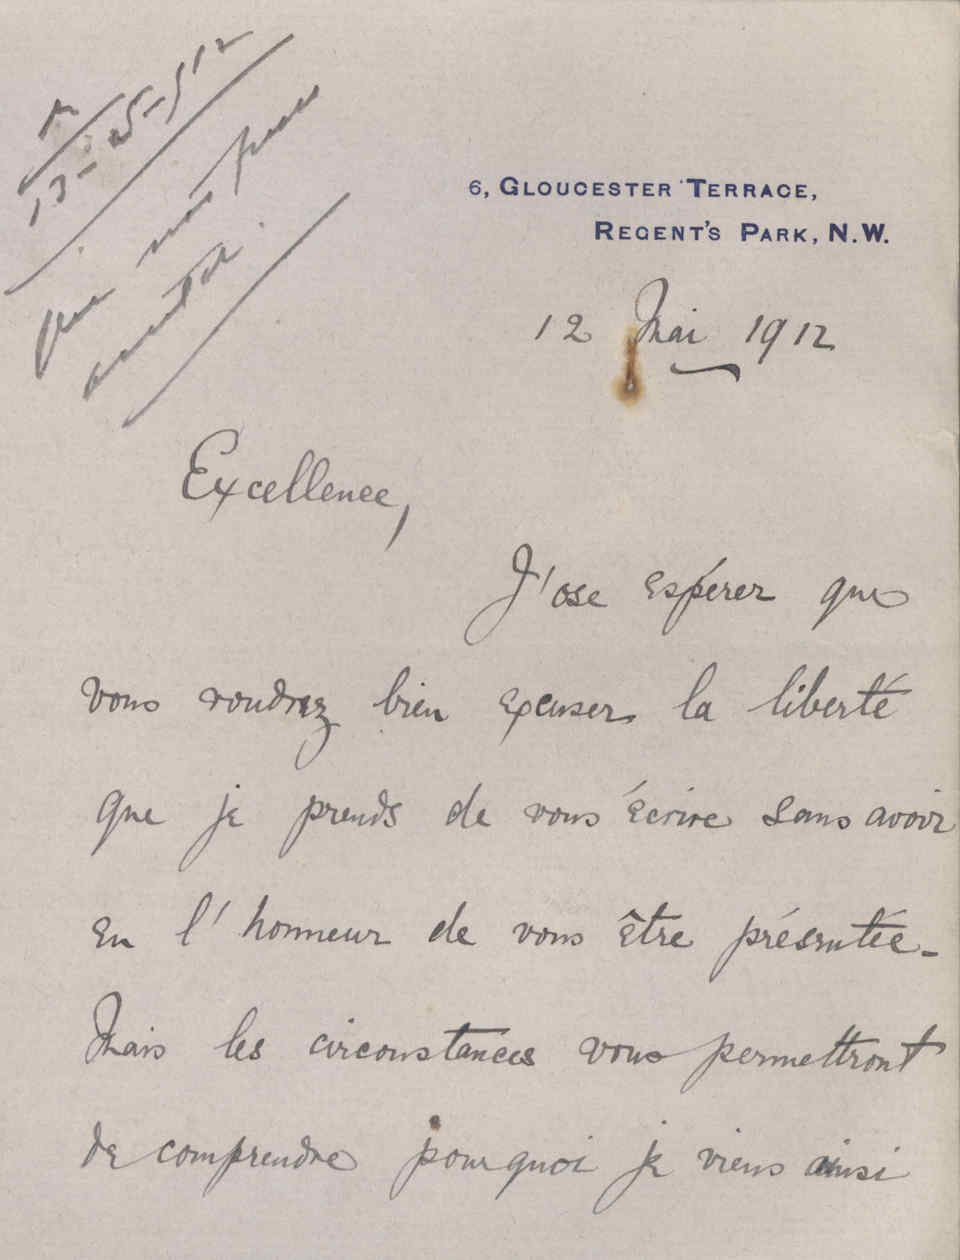 R
13-5-912
6, GLOUCESTER TERRACE,
REGENT'S PARK, N.W.
12 Mai 1912
Excellence,
J'ose espérer que
vous voudrez bien excuser la liberté
que je prends de vous écrire sans avoir
eu l'honneur de vous être présentée.
Mais les circonstances vous permettront
de comprendre pourquoi je viens ainsi